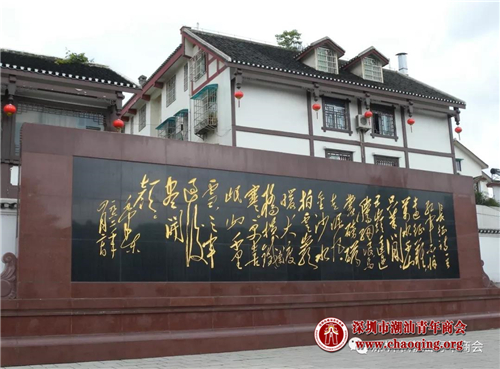 长征诗一首
红军不怕
远征难
万水千山
只等闲
五岭逶迤
腾细浪乌
蒙磅礴
走泥丸
金沙水
拍云崖
暖大渡
桥横铁索
寒更喜
岷山千里
雪三军
过后
尽开
颜
毛泽东
深圳市潮汕青年商会
www.chaoqing.org